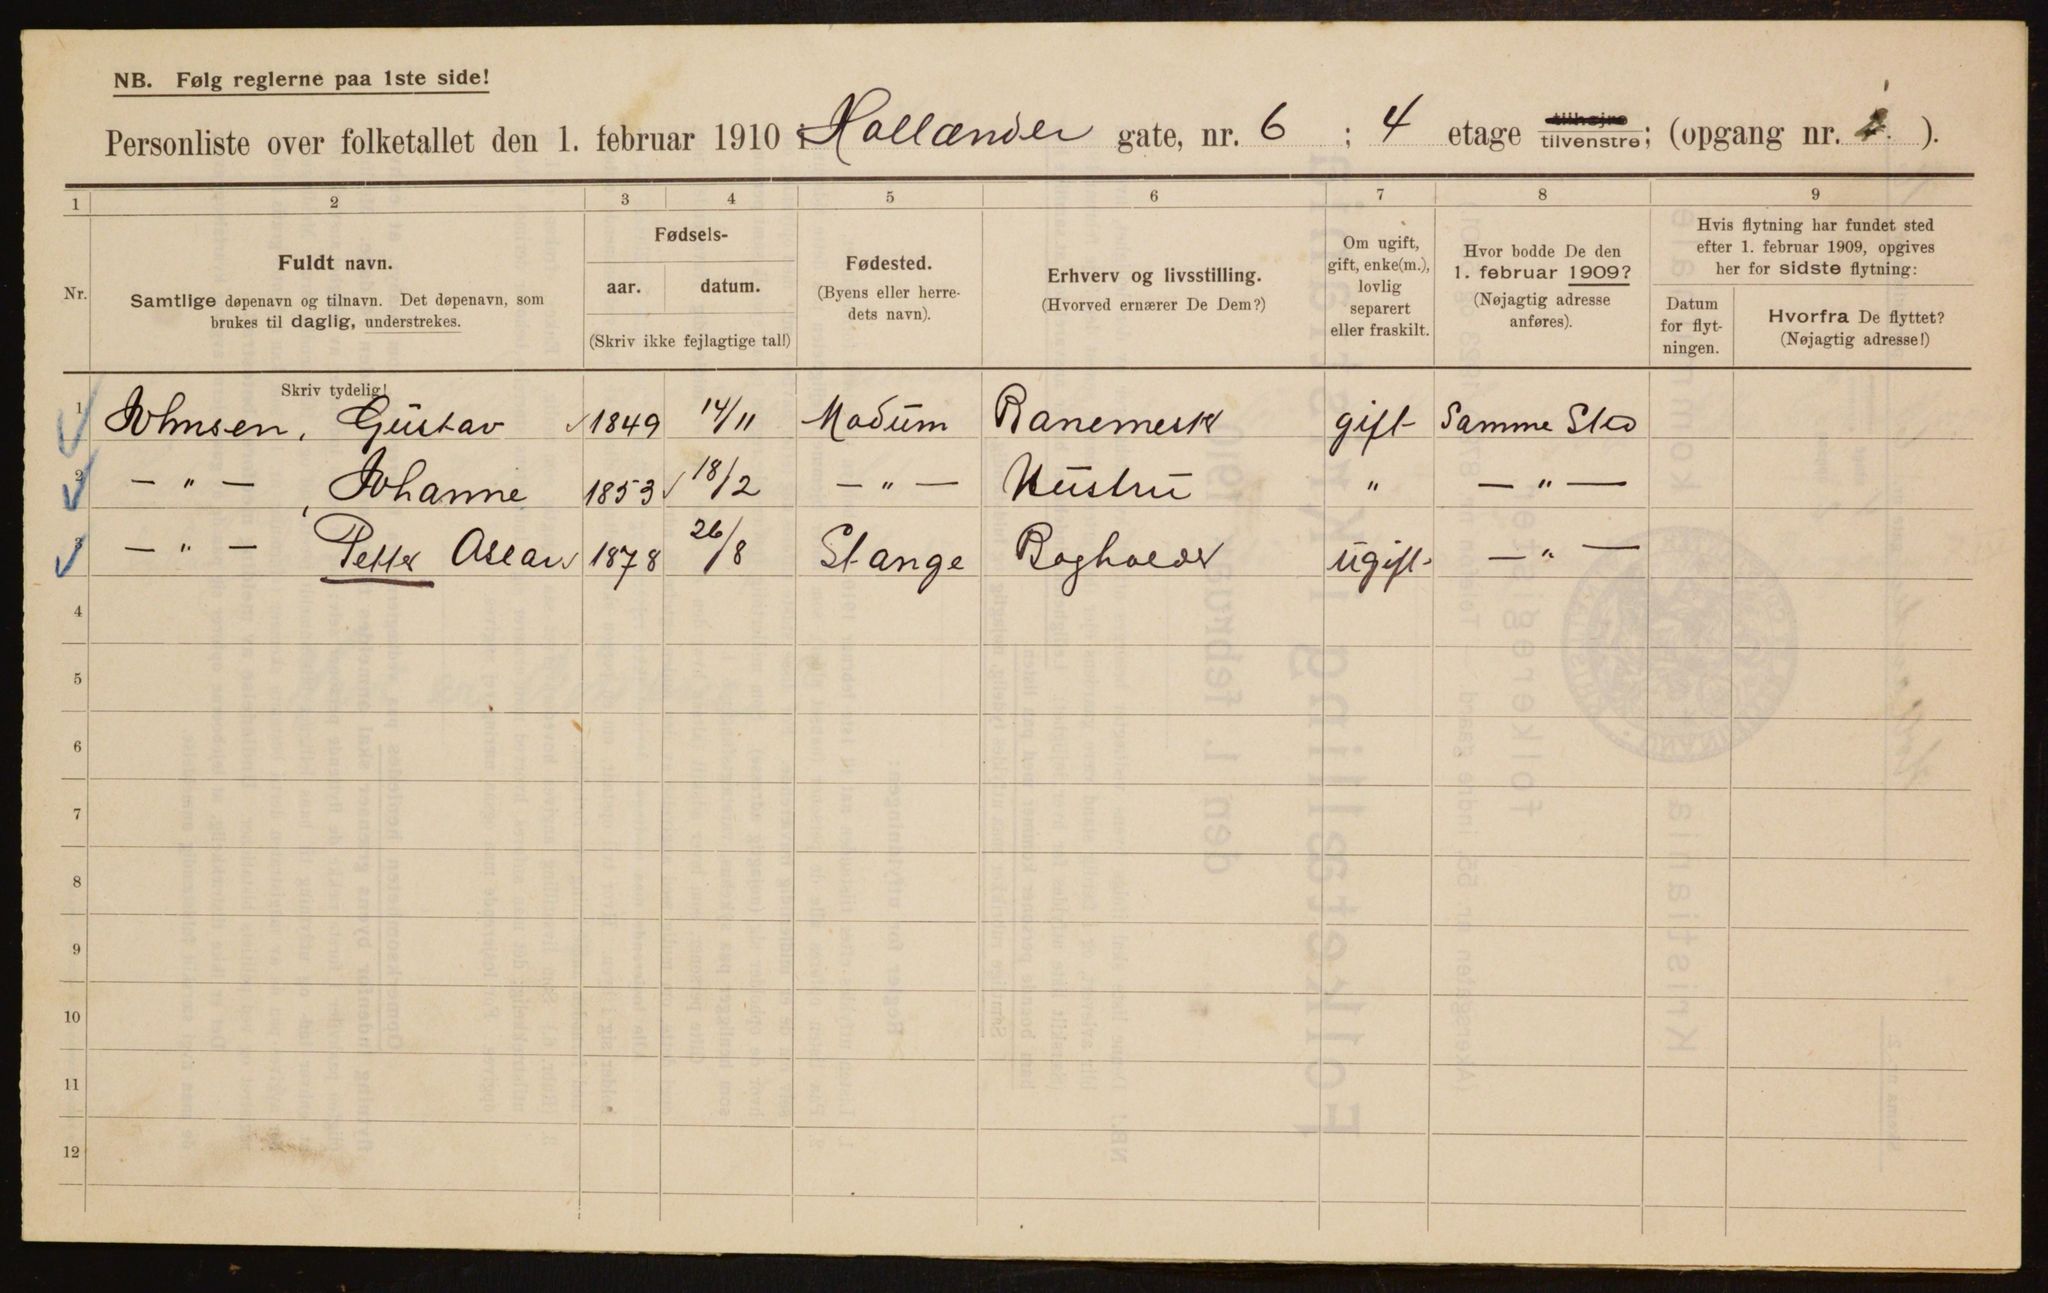 NB. Følg reglerne paa 1ste side!
Personliste over folketallet den 1. februar 1910 i Hollænder gate, nr. 6 ; 4 etage tilhøjre tilvenstre; (opgang nr. ).
1 2 3 4 5 6 7 8 9
Nr.
Fuldt navn.
Samtlige døpenavn og tilnavn. Det døpenavn, som
brukes til daglig, understrekes.
Fødsels-
aar. datum.
(Skriv ikke fejlagtige tal!)
Fødested.
(Byens eller herre-
dets navn).
Erhverv og livsstilling.
(Hvorved ernærer De Dem?)
Om ugift,
gift, enke(m.),
lovlig
separert
eller fraskilt.
Hvor bodde De den
1. februar 1909?
(Nøjagtig adresse
anføres).
Hvis flytning har fundet sted
efter 1. februar 1909, opgives
her for sidste flytning:
Datum
for flyt-
ningen.
Hvorfra De flyttet?
(Nøjagtig adresse!)
Skriv tydelig!
1 Johnsen, Gustav 1849 14/11 Modum Banemestr gift Samme Sted
2 — " — , Johanne 1853 18/2 — " — Hustru " — " —
3 — " — Petter Oscar 1878 26/8 Stange Bogholder ugift — " —
4
5
6
7
8
9
10
11
12